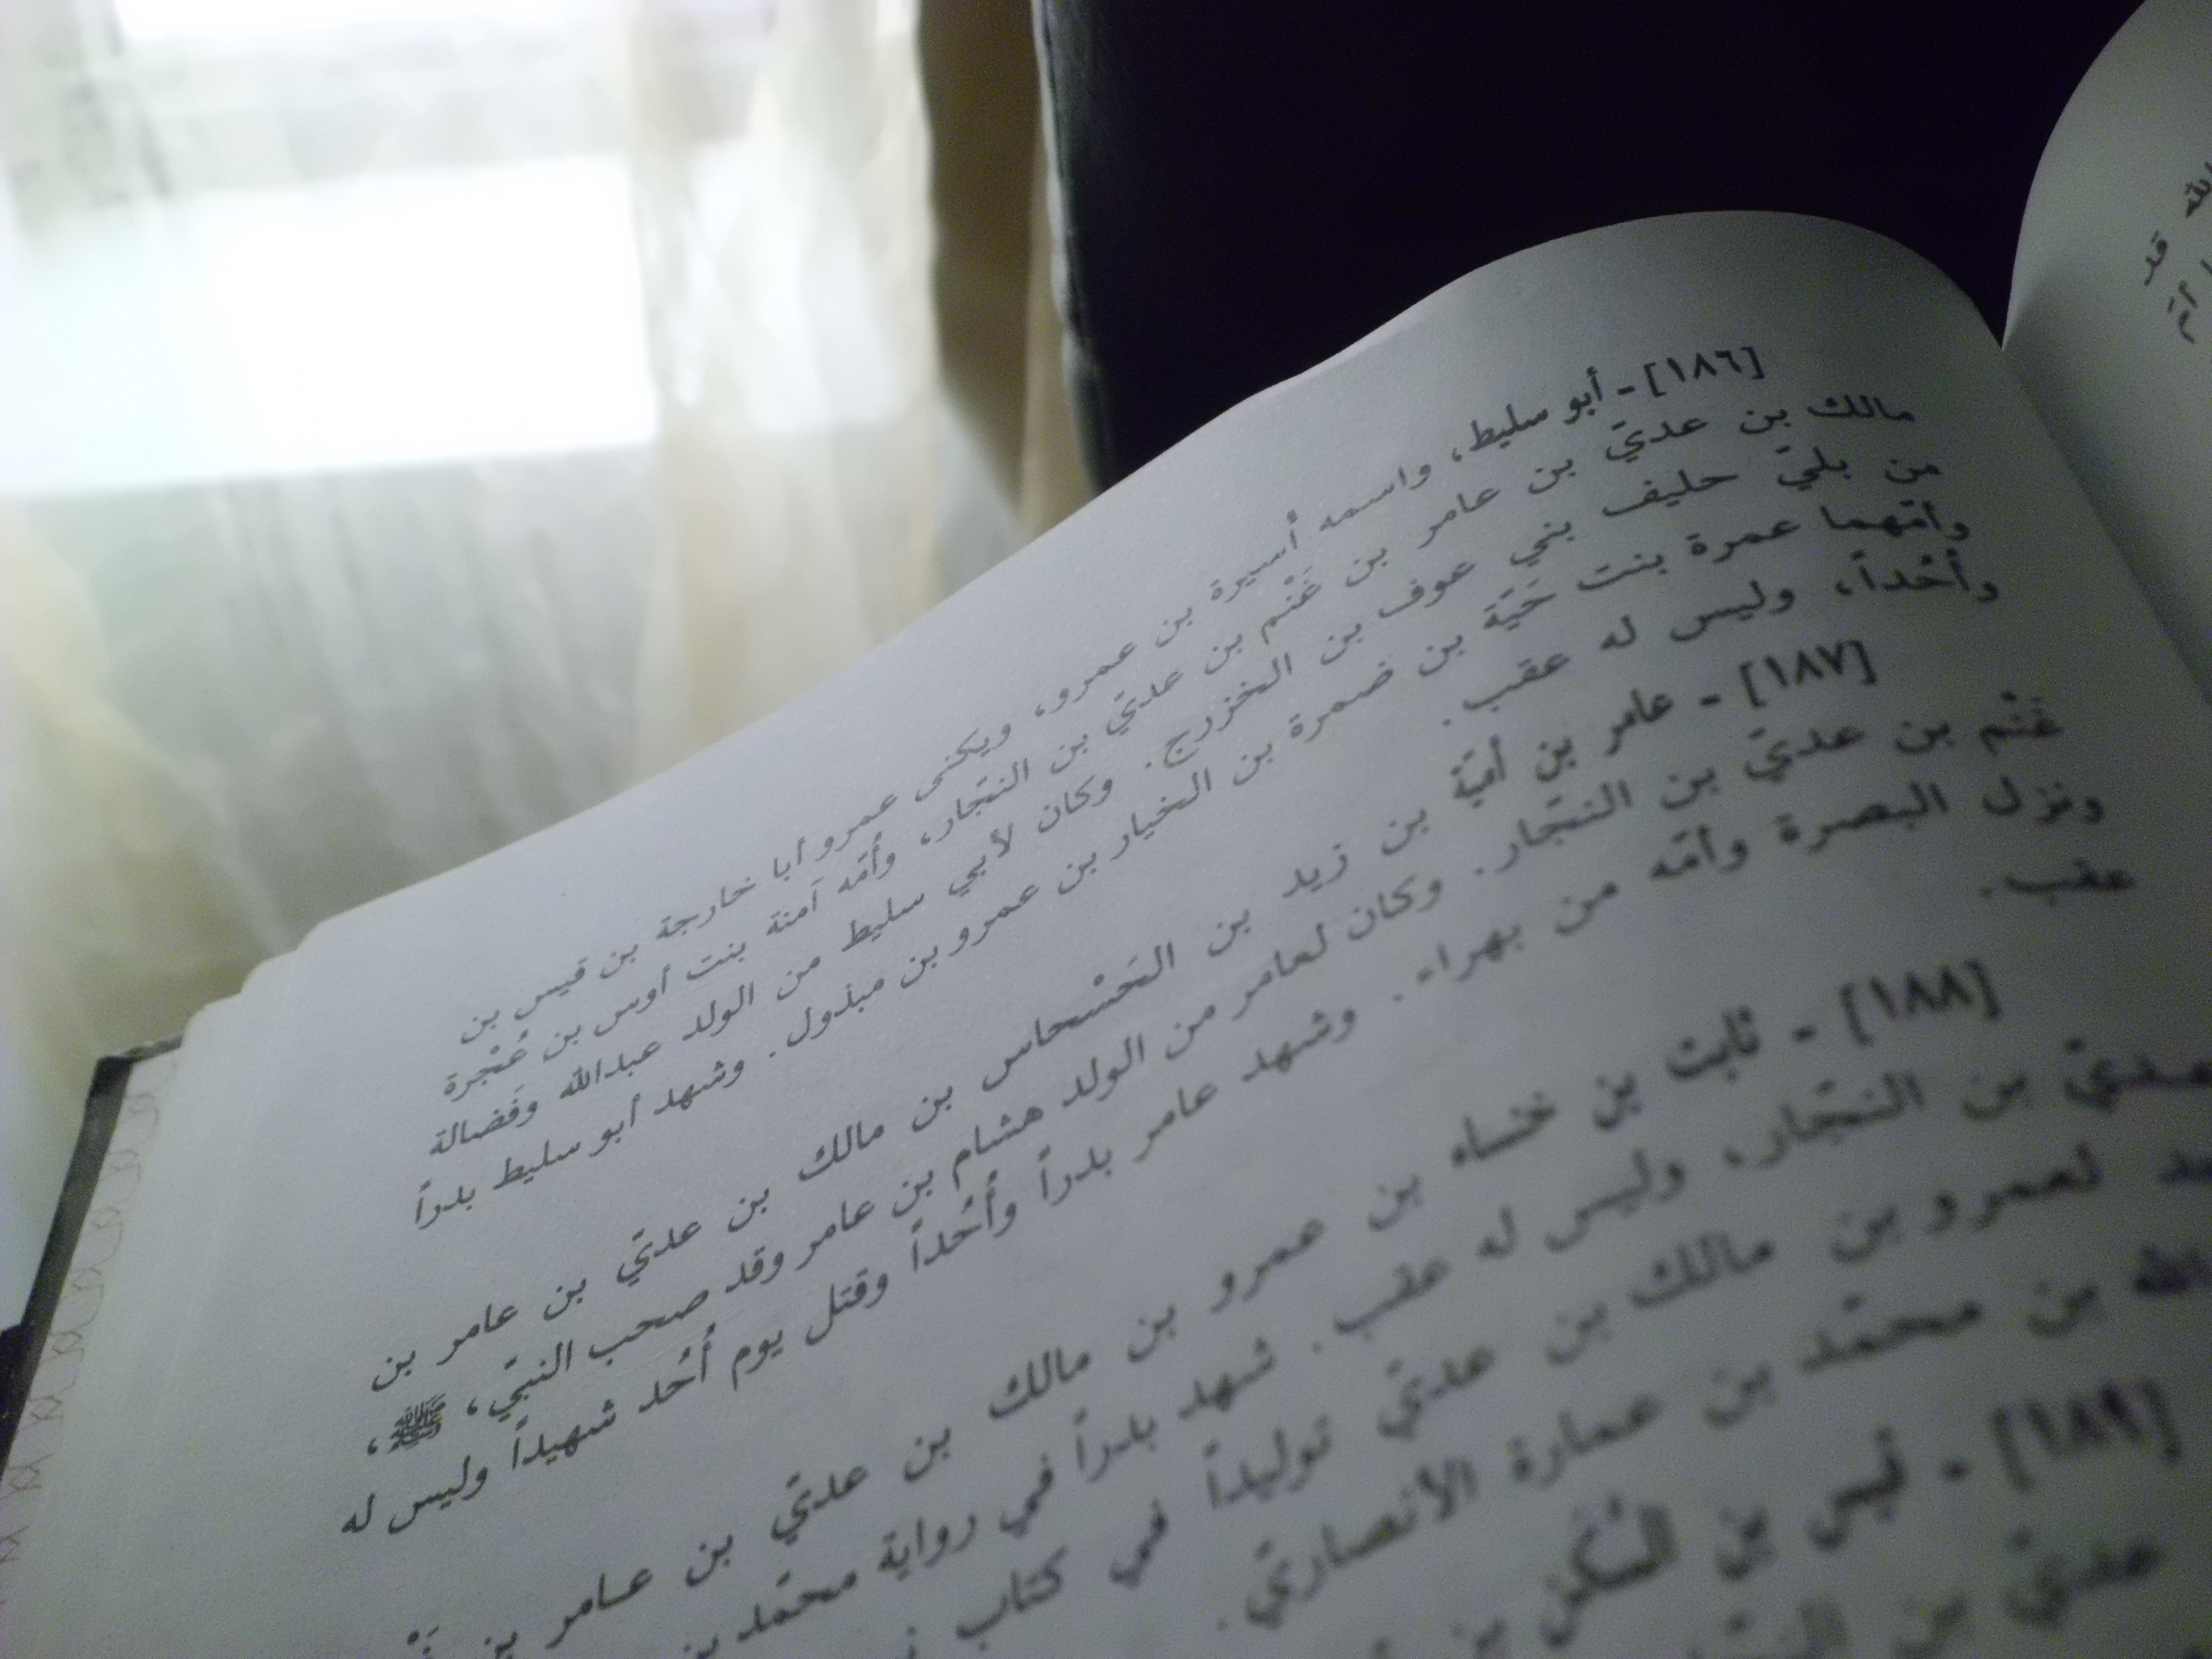 [١٨٦] - أبو سليط، واسمه أُسيرة بن عمرو، ويكنى عمرو أبا خارجة بن قيس بن
مالك بن عديّ بن عامر بن غَنْم بن عديّ بن النجّار، وأُمّه آمنة بنت أوس بن عُجْرة
من بليّ حليف بني عوف بن الخزرج. وكان لأبي سليط من الولد عبدالله وفَضالة
وأمّهما عمرة بنت حَيّة بن ضمرة بن الخيار بن عمرو بن مبذول. وشهد أبو سليط بدراً
وأُحُداً، وليس له عقب.
[١٨٧] - عامر بن أميّة بن زيد بن الحَسْحاس بن مالك بن عديّ بن عامر بن
غَنْم بن عديّ بن النجّار. وكان لعامر من الولد هشام بن عامر وقد صحب النبيّ، ﷺ،
ونزل البصرة وأمّه من بهراء. وشهد عامر بدراً وأُحُداً وقتل يوم أُحُد شهيداً وليس له
عقب.
[١٨٨] - ثابت بن خنساء بن عمرو بن مالك بن عديّ بن عامر بن
عديّ بن النجّار، وليس له عقب. شهد بدراً في رواية محمّد بن
لعمرو بن مالك بن عديّ توليداً في كتاب
الله بن محمّد بن عمارة الأنصاريّ.
[١٨٩] - قيس بن السَّكَن بن
عديّ بن
الله
قد